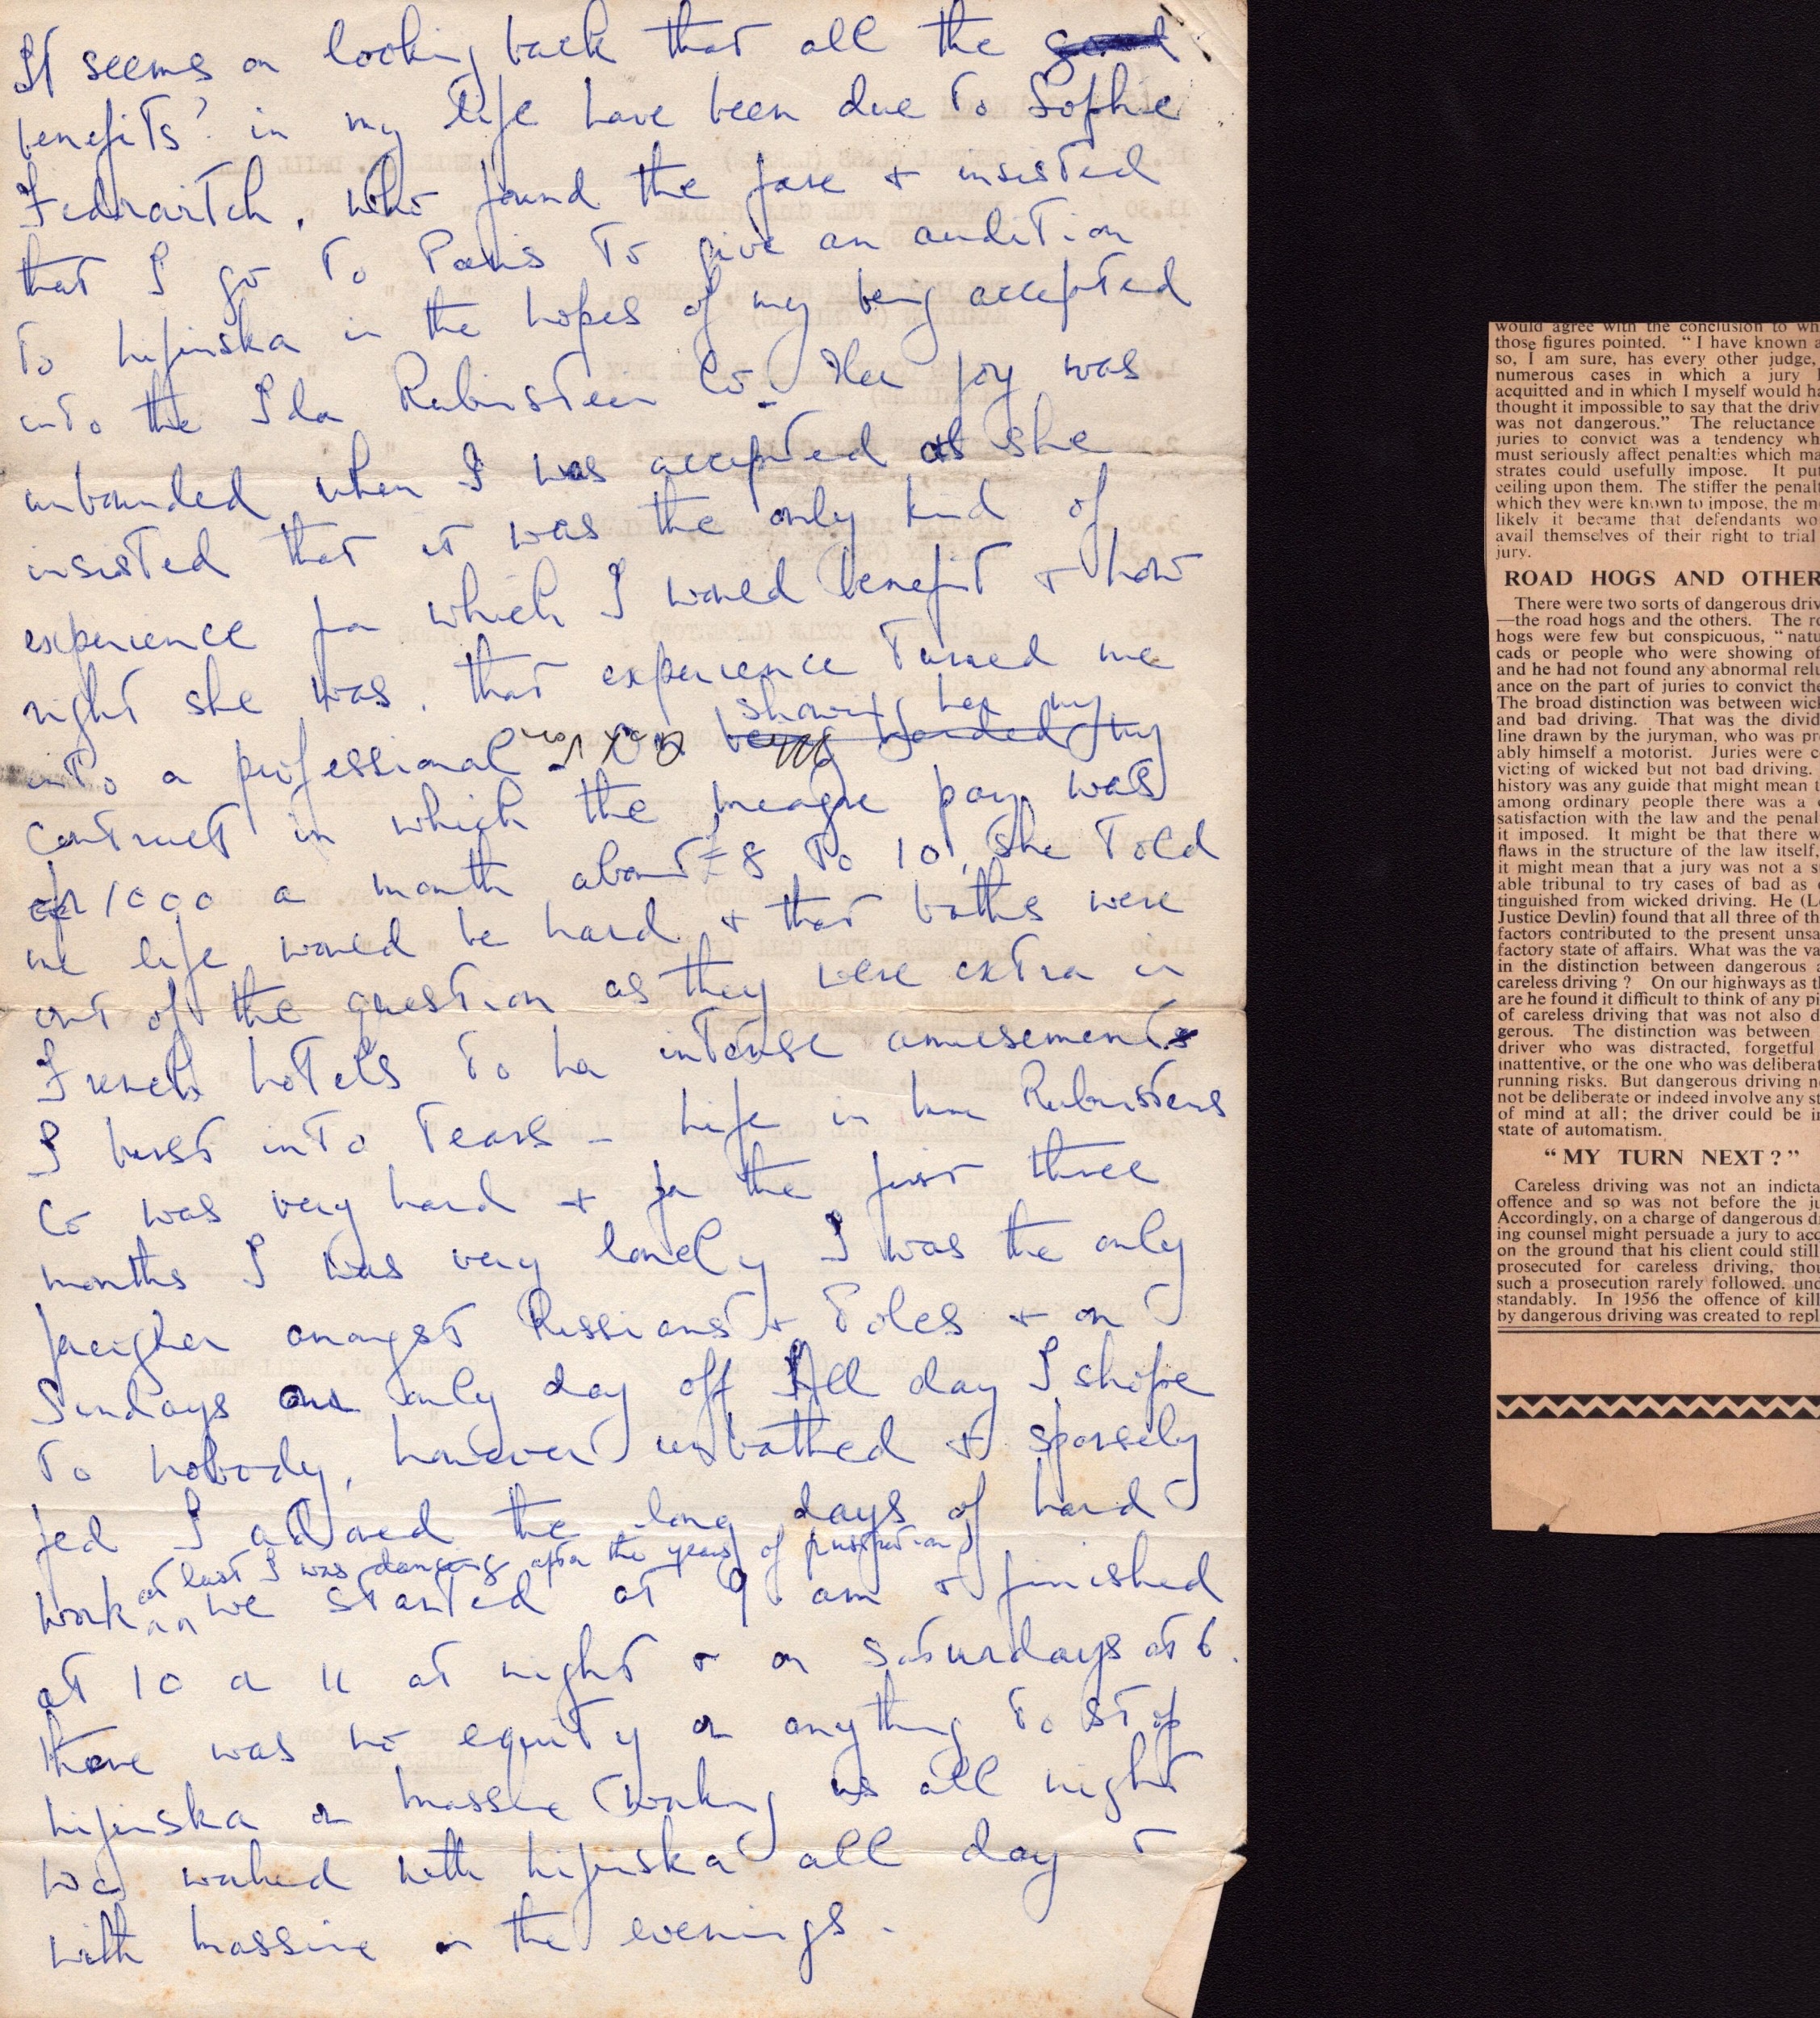 It seems on looking back that all the good
benefits? in my life have been due to Sophie
Fedravitch, who found the fare + insisted
that I go to Paris to give an audition
to Nijinska in the hopes of my being accepted
into the Ida Rubinstein Co. Her joy was
unbounded when I was accepted as she
insisted that it was the only kind of
experience for which I would benefit + how
right she was, that experience turned me
into a professional
showing her my
being handed my
contract in which the meagre pay was
of 1000 a month about £8 to 10, she told
me life would be hard + that baths were
out of the question as they were extra in
French hotels to her intense amusement
I burst into tears – Life in Mme Rubinsteins
Co was very hard + for the first three
months I was very lonely I was the only
foreigner amongst Russians + Poles + on
Sundays our only day off All day I spoke
to nobody, however unbathed + sparsely
fed I adored the long days of hard
at last I was dancing after the years of frustration
work we started at 9 am + finished
at 10 or 11 at night + on Saturdays at 6.
there was no equity or anything to stop
Nijinska or Massine working us all night
We worked with Nijinska all day +
with Massine in the evenings.
would agree with the conclusion to wh
those figures pointed. "I have known a
so, I am sure, has every other judge,
numerous cases in which a jury
acquitted and in which I myself would ha
thought it impossible to say that the driv
was not dangerous." The reluctance
juries to convict was a tendency wh
must seriously affect penalties which ma
strates could usefully impose. It put
ceiling upon them. The stiffer the penalt
which they were known to impose, the m
likely it became that defendants wo
avail themselves of their right to trial
jury.
ROAD HOGS AND OTHER
There were two sorts of dangerous driv
—the road hogs and the others. The ro
hogs were few but conspicuous, "natu
cads or people who were showing of
and he had not found any abnormal relu
ance on the part of juries to convict the
The broad distinction was between wick
and bad driving. That was the divid
line drawn by the juryman, who was pr
ably himself a motorist. Juries were c
victing of wicked but not bad driving.
history was any guide that might mean t
among ordinary people there was a
satisfaction with the law and the penal
it imposed. It might be that there w
flaws in the structure of the law itself,
it might mean that a jury was not a s
able tribunal to try cases of bad as
tinguished from wicked driving. He (L
Justice Devlin) found that all three of th
factors contributed to the present unsa
factory state of affairs. What was the va
in the distinction between dangerous a
careless driving? On our highways as th
are he found it difficult to think of any pi
of careless driving that was not also d
gerous. The distinction was between
driver who was distracted, forgetful
inattentive, or the one who was deliberat
running risks. But dangerous driving n
not be deliberate or indeed involve any st
of mind at all; the driver could be i
state of automatism.
"MY TURN NEXT?"
Careless driving was not an indicta
offence and so was not before the ju
Accordingly, on a charge of dangerous d
ing counsel might persuade a jury to acc
on the ground that his client could still
prosecuted for careless driving, thou
such a prosecution rarely followed, und
standably. In 1956 the offence of kill
by dangerous driving was created to repl